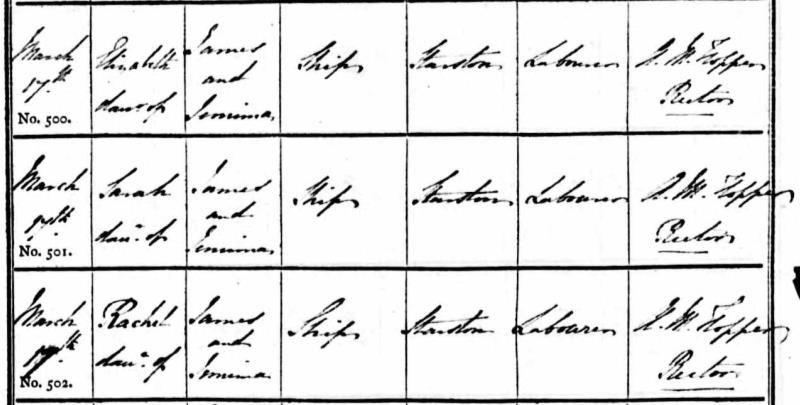 March
17th
No. 500.
Elizabeth
daur of
James
and
Jemima
Ship
Starston
Labourer
A. M. Hopper
Rector
March
17th
No. 501.
Sarah
daur. of
James
and
Jemima
Ship
Starston
Labourer
A. M. Hopper
Rector
March
17th
No. 502.
Rachel
daur. of
James
and
Jemima
Ship
Starston
Labourer
A. M. Hopper
Rector